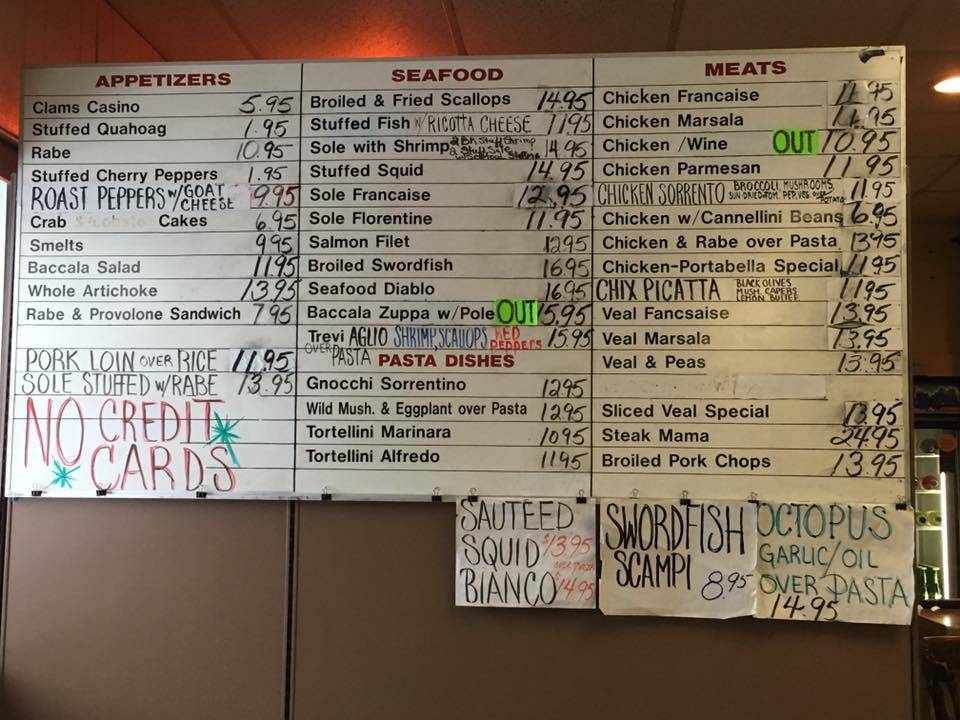 APPETIZERS
Clams Casino 5.95
Stuffed Quahog 1.95
Rabe 10.95
Stuffed Cherry Peppers 1.95
ROAST PEPPERS W/GOAT CHEESE 9.95
Crab Cakes 6.95
Smelts 9.95
Baccala Salad 11.95
Whole Artichoke 13.95
Rabe & Provolone Sandwich 7.95
PORK LOIN OVER RICE 11.95
SOLE STUFFED W/RABE 13.95
NO CREDIT
CARDS
SEAFOOD
Broiled & Fried Scallops 14.95
Stuffed Fish W/RICOTTA CHEESE 11.95
Sole with Shrimp 14.95
Stuffed Squid 14.95
Sole Francaise 12.95
Sole Florentine 11.95
Salmon Filet 12.95
Broiled Swordfish 16.95
Seafood Diablo 16.95
Baccala Zuppa w/Pole OUT 15.95
Trevi AGLIO SHRIMP, SCALLOPS RED PEPPERS 15.95
OVER PASTA
PASTA DISHES
Gnocchi Sorrentino 12.95
Wild Mush. & Eggplant over Pasta 12.95
Tortellini Marinara 10.95
Tortellini Alfredo 11.95
MEATS
Chicken Francaise 11.95
Chicken Marsala 11.95
Chicken /Wine OUT 10.95
Chicken Parmesan 11.95
CHICKEN SORRENTO BROCCOLI, MUSHROOMS, 11.95
Chicken w/Cannellini Beans 6.95
Chicken & Rabe over Pasta 13.95
Chicken-Portabella Special 11.95
CHIX PICATTA BLACK OLIVES MUSH. CAPERS LEMON BUTTER 11.95
Veal Fancsaise 13.95
Veal Marsala 13.95
Veal & Peas 13.95
Sliced Veal Special 13.95
Steak Mama 24.95
Broiled Pork Chops 13.95
SAUTEED
SQUID $13.95
BIANCO OVER PASTA $14.95
SWORDFISH
SCAMPI 8.95
OCTOPUS
GARLIC/OIL
OVER PASTA
14.95